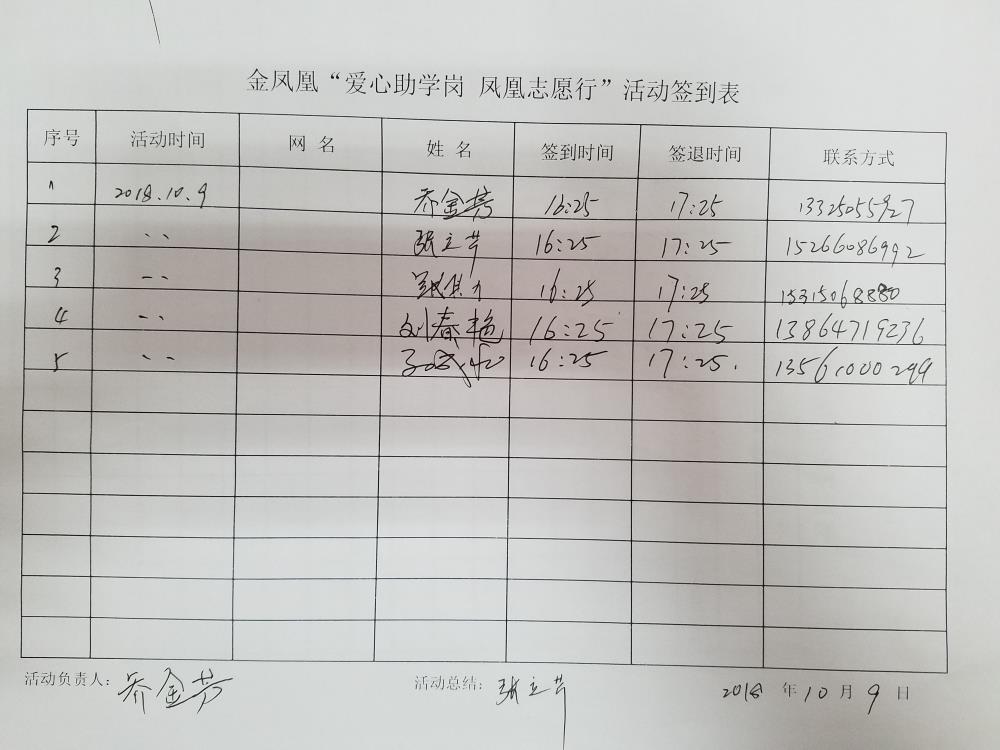 金凤凰“爱心助学岗 凤凰志愿行”活动签到表
序号 活动时间 网 名 姓 名 签到时间 签退时间 联系方式
1 2018.10.9 乔金芳 16:25 17:25 13325055927
2 、、 张立芹 16:25 17:25 15266086992
3 、、 16:25 17:25 15315068880
4 、、 刘春艳 16:25 17:25 13864719236
5 、、 16:25 17:25. 13561000299
活动负责人: 乔金芳 活动总结: 张立芹 2018 年 10 月 9 日